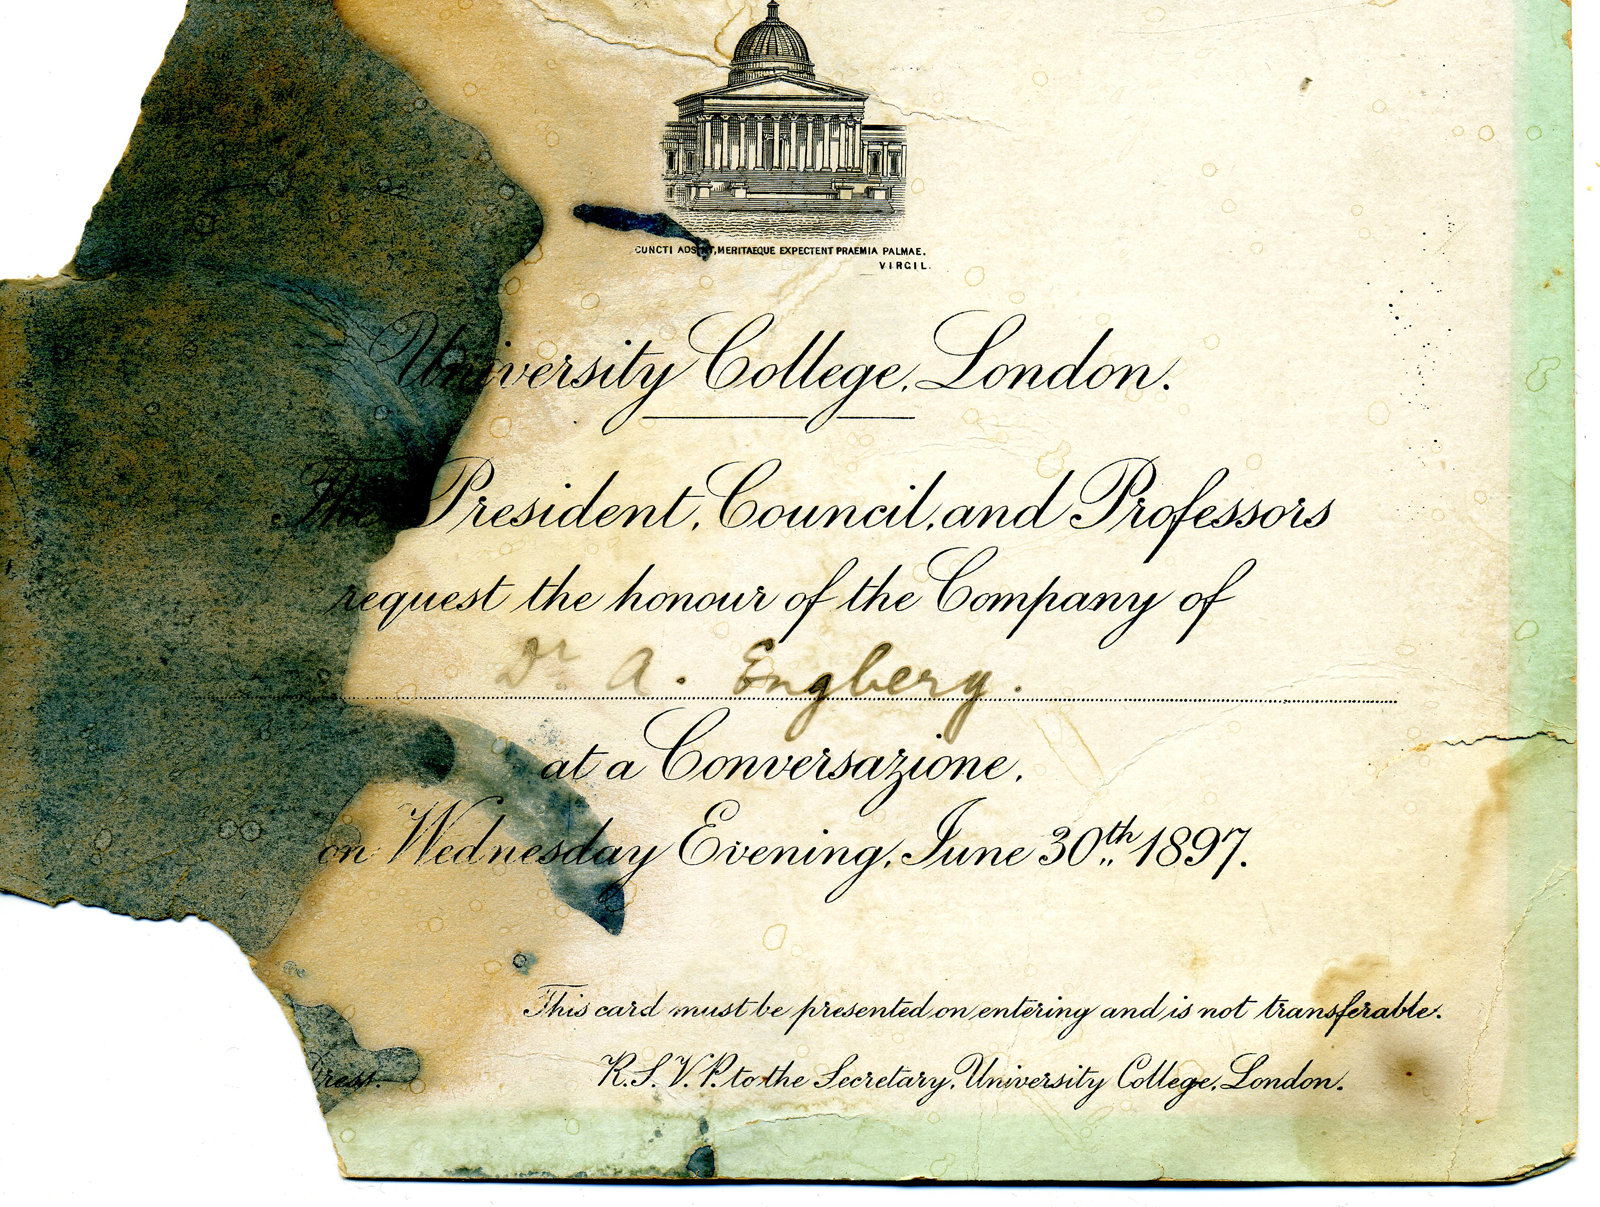 CUNCTI ADSINT, MERITAEQUE EXPECTENT PRAEMIA PALMAE.
VIRGIL.
University College, London.
The President, Council, and Professors
request the honour of the Company of
Dr A. Engberg.
at a Conversazione,
on Wednesday Evening, June 30th 1897.
This card must be presented on entering and is not transferable.
R.S.V.P. to the Secretary, University College, London.